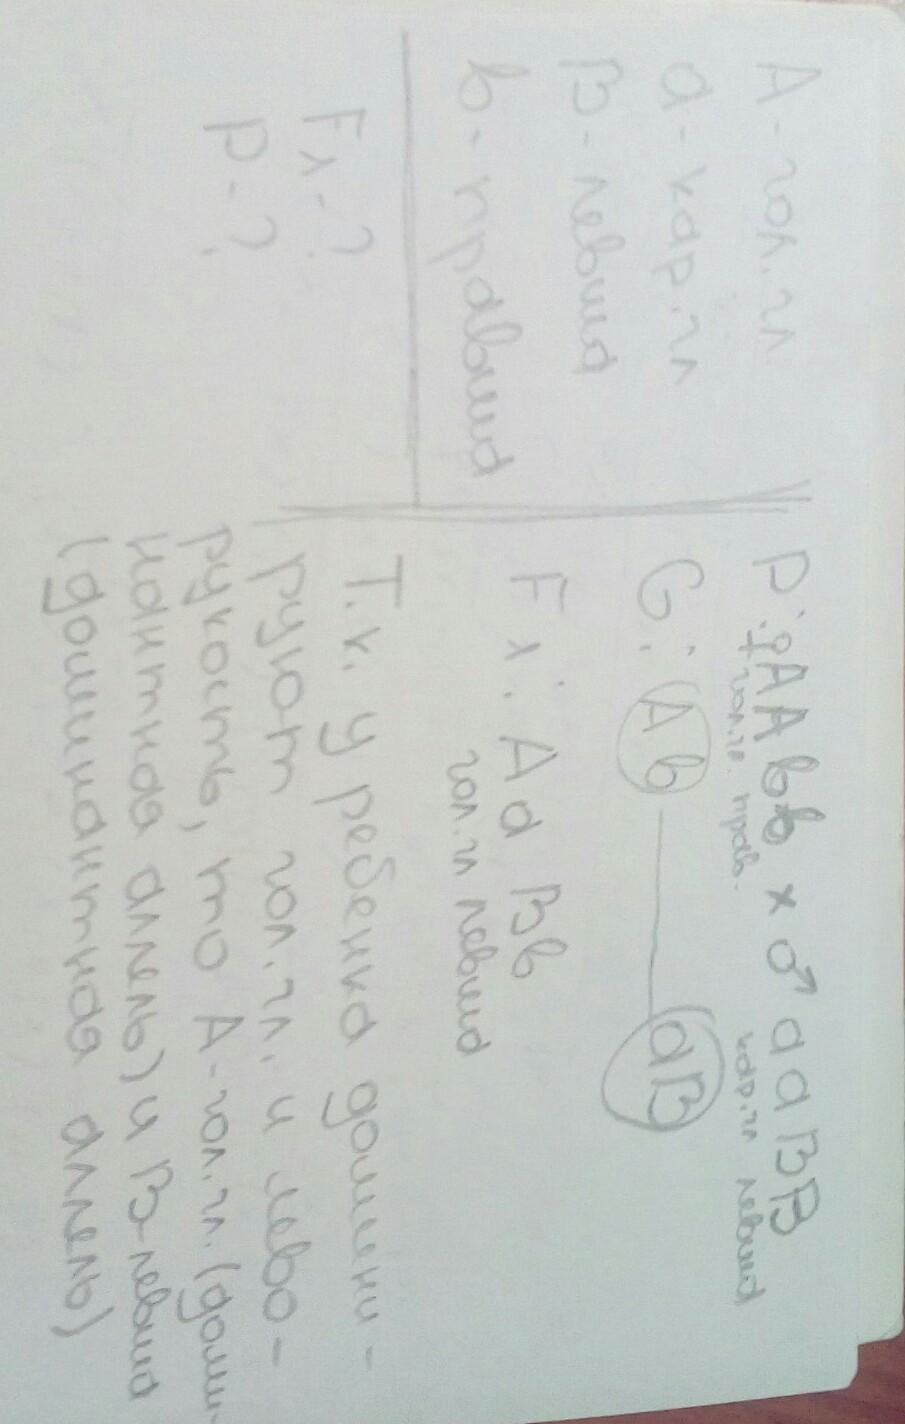 А - гол. гл
а - кар. гл
В - левша
в - правша
F1 - ?
Р - ?
Р: ♀ААвв × ♂ааВВ
гол. гл. прав. кар. гл левша
G: Ав аВ
F1: Аа Вв
гол. гл левша
Т.к. у ребенка домени-
руют гол. гл. и лево-
рукость, то А-гол. гл. (доми-
нантная аллель) и В-левша
(доминантная аллель)